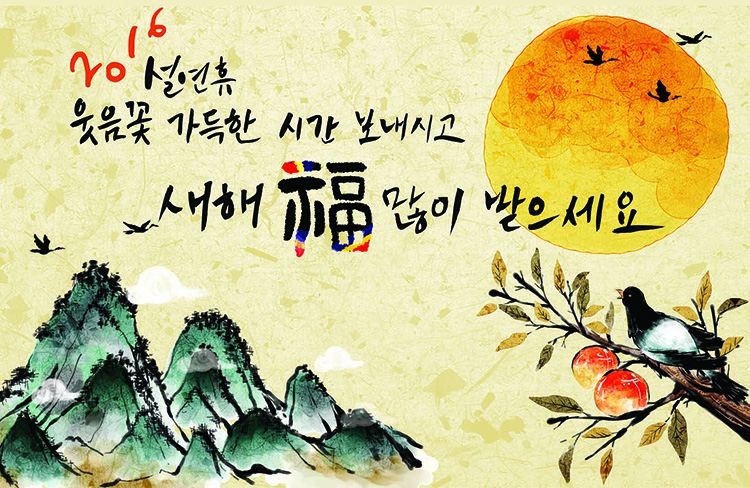 2016 설연휴
웃음꽃 가득한 시간 보내시고
새해 福 많이 받으세요